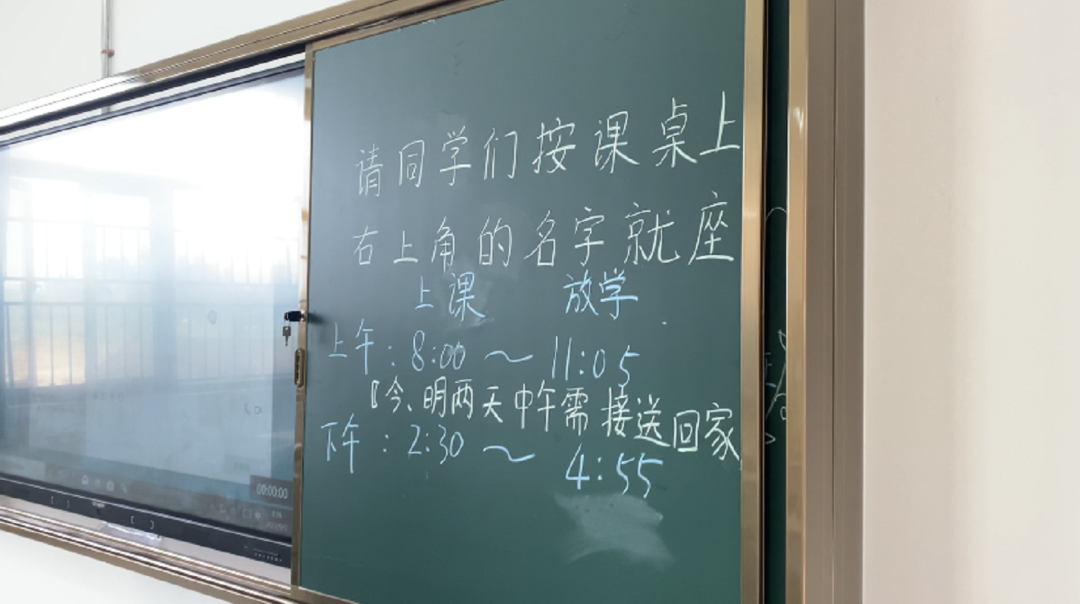 请同学们按课桌上
右上角的名字就座
上课 放学
上午：8:00 ～ 11:05
『今、明两天中午需接送回家
下午：2:30 ～ 4:55
00:00:00